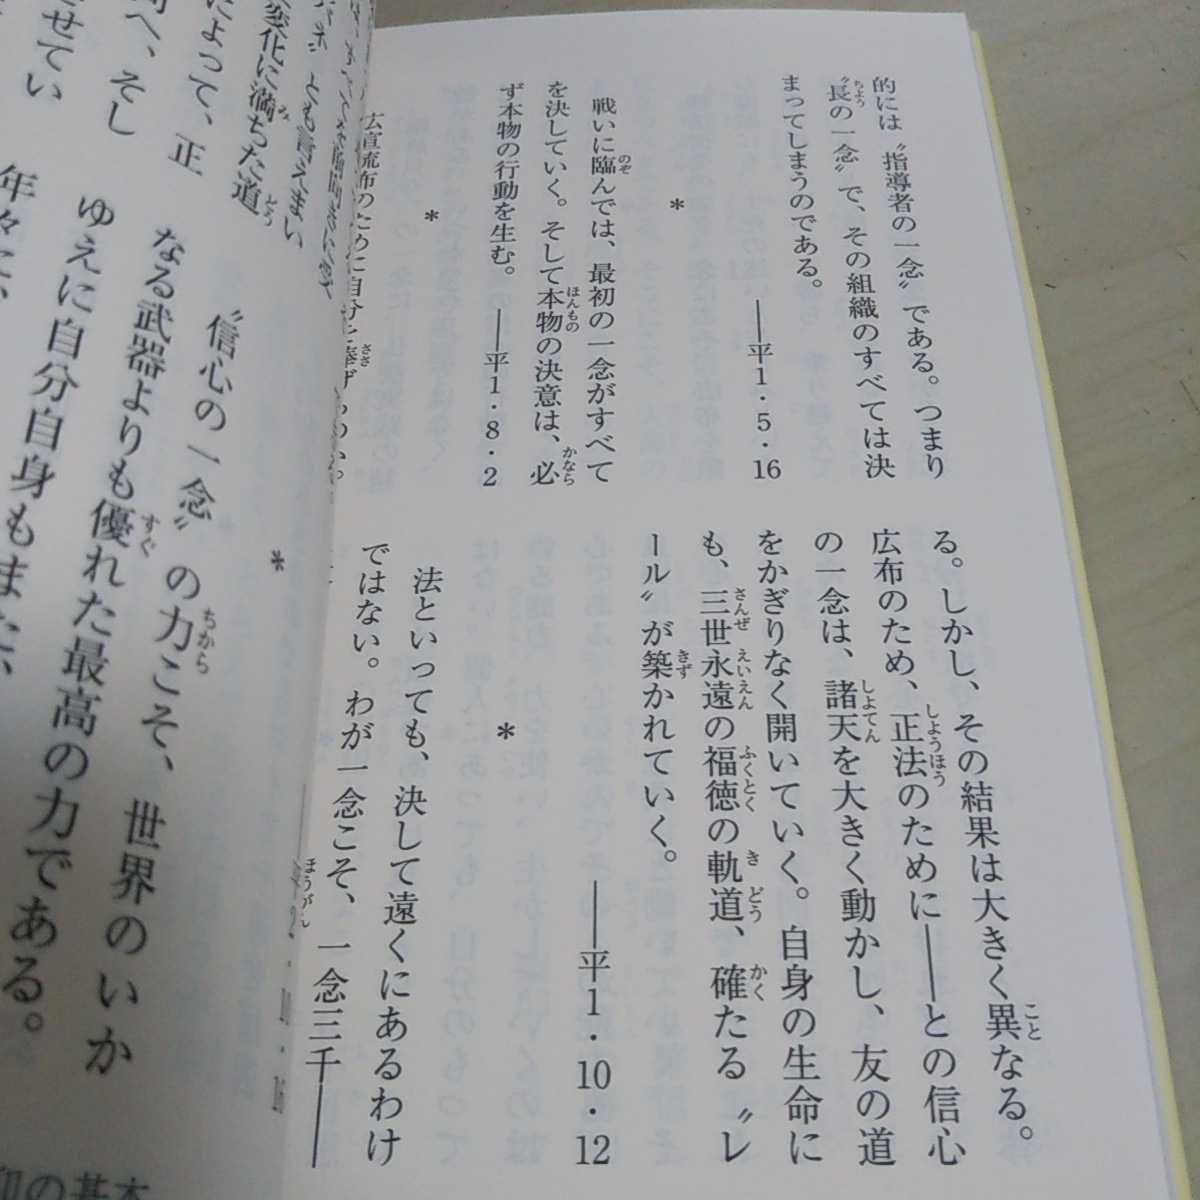 的には〝指導者の一念〟である。つまり
〝長の一念〟で、その組織のすべては決
まってしまうのである。
――平1・5・16
＊
戦いに臨んでは、最初の一念がすべて
を決していく。そして本物の決意は、必
ず本物の行動を生む。
――平1・8・2
＊
広宣流布のために自分を捧げ
る。しかし、その結果は大きく異なる。
広布のため、正法のために――との信心
の一念は、諸天を大きく動かし、友の道
をかぎりなく開いていく。自身の生命に
も、三世永遠の福徳の軌道、確たる〝レ
ール〟が築かれていく。
――平1・10・12
＊
法といっても、決して遠くにあるわけ
ではない。わが一念こそ、一念三千――
とも言えまい
変化に満ちた道
によって、正
へ、そし
せてい
＊
〝信心の一念〟の力こそ、世界のいか
なる武器よりも優れた最高の力である。
ゆえに自分自身もまた、
年々に、